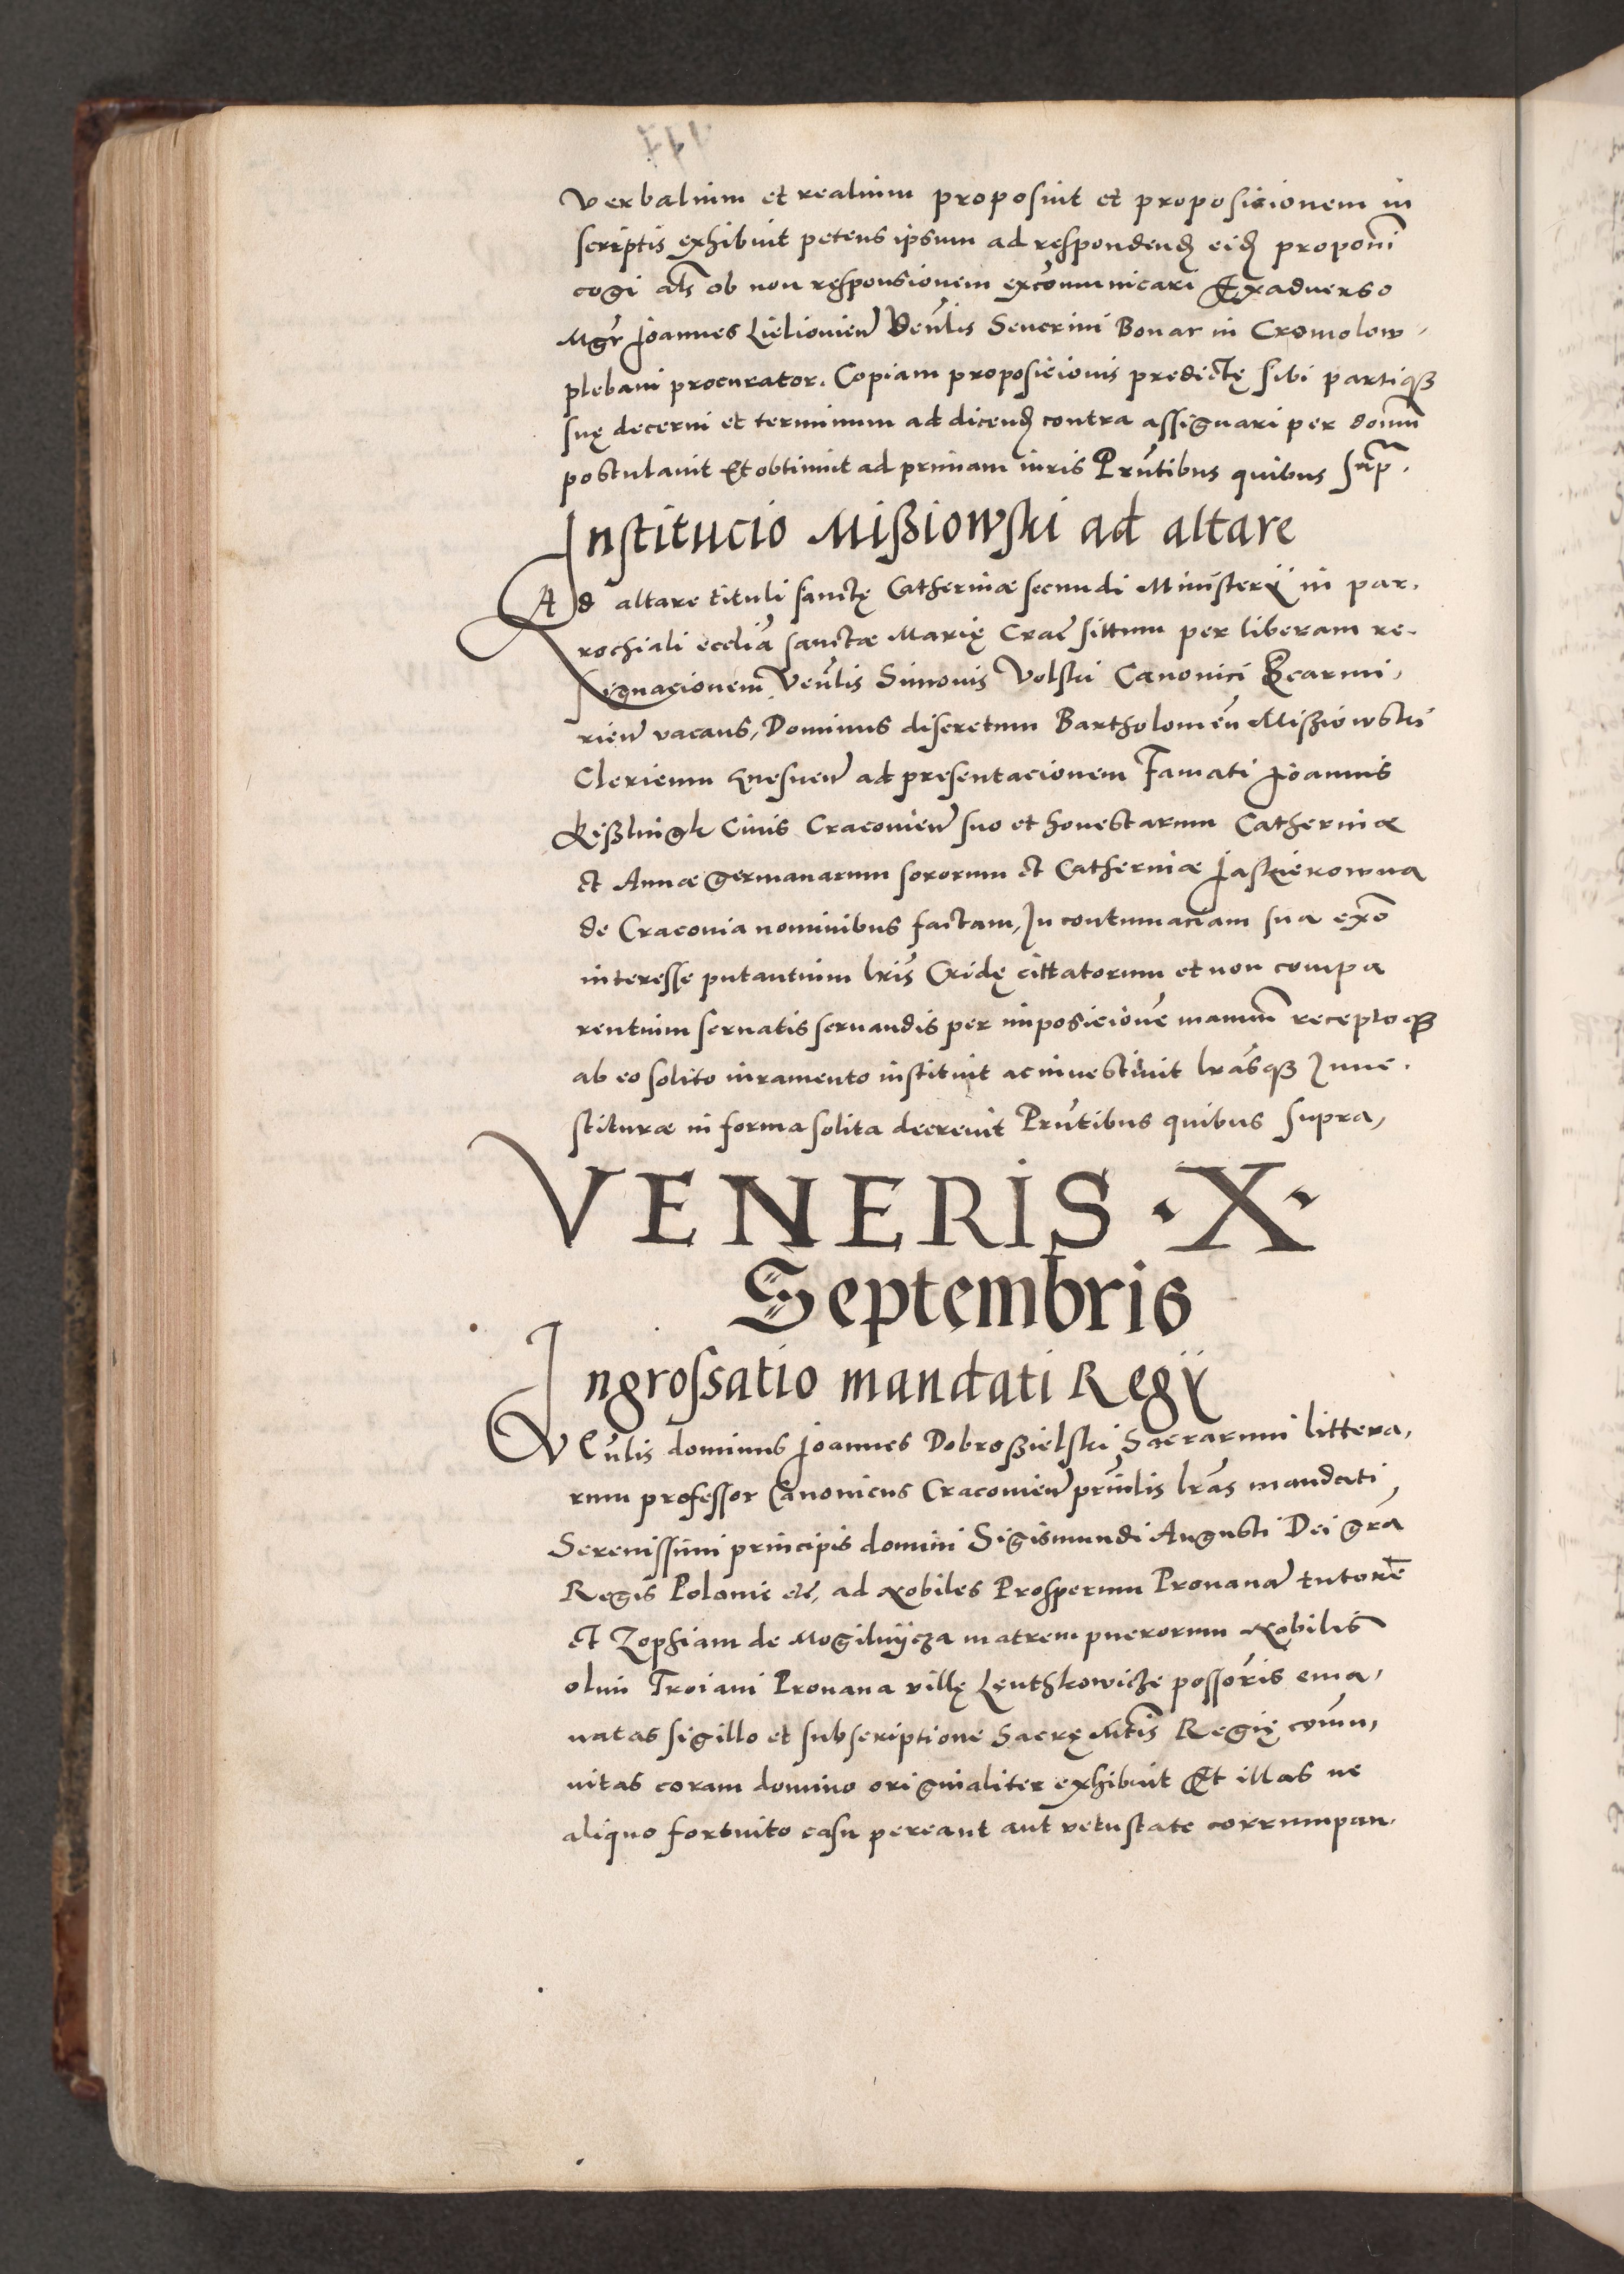 verbalium et realium proposuit et proposicionem in
scriptis exhibuit petens ipsum ad respondend eid proponi
cogi als ob non responsionem excomunicari Ex adverso
Mgr Joannes Lielionien Venlis Severini Bonar in Cromolow,
plebani procurator. Copiam proposicionis predictę sibi partiqz
suę decerni et terminum ad dicend contra assignari per domin
postulavit Et obtinuit ad primam iuris Prntibus quibus supra.
Institucio Mißiowski ad altare
Ad altare tituli sanctę Catherinæ secundi Ministerij in par,
rochiali ecclia sanctæ Marię Crac sittum per liberam re-
signacionem Venlis Simonis Volski Canonici Scarmi,
rien vacans, Dominus discretum Bartholomeu Mißiowski
Clericum Gnesnen ad presentacionem Famati Joannis
Kißlingk Civis Cracovien suo et honestarum Catherinæ
et Annæ germanarum sororum et Catherinæ Jaskierowna
de Cracovia nominibus factam, In contumaciam sua exno
interesse putantuim lris Cridę cittatorum et non compa
rentium servatis servandis per imposicione manuu receptoqz
ab eo solito iuramento instituit ac investivit lrasqz Inve.
stituræ in forma solita decrevit Prntibus quibus supra,
VENERIS · X ·
Septembris
Ingrossatio mandati Regij
VEnlis dominus Joannes Dobroßielski Sacrarum littera,
rum professor Canonicus Cracovien prnilis lras mandati
Serenissimi principis domini Sigismundi Augusti Dei gra
Regis Polonie etc, ad Nobiles Prosperum Provana tutore
et Zophiam de Mogilnycza matrem puerorum Nobilis
olim Troiani Provana villę Lenthkowicze possoris ema,
natas sigillo et subscriptione Sacrę Mtis Regię comu,
nitas coram domino originaliter exhibuit Et illas ne
aliquo fortuito casu pereant aut vetustate corrumpan.